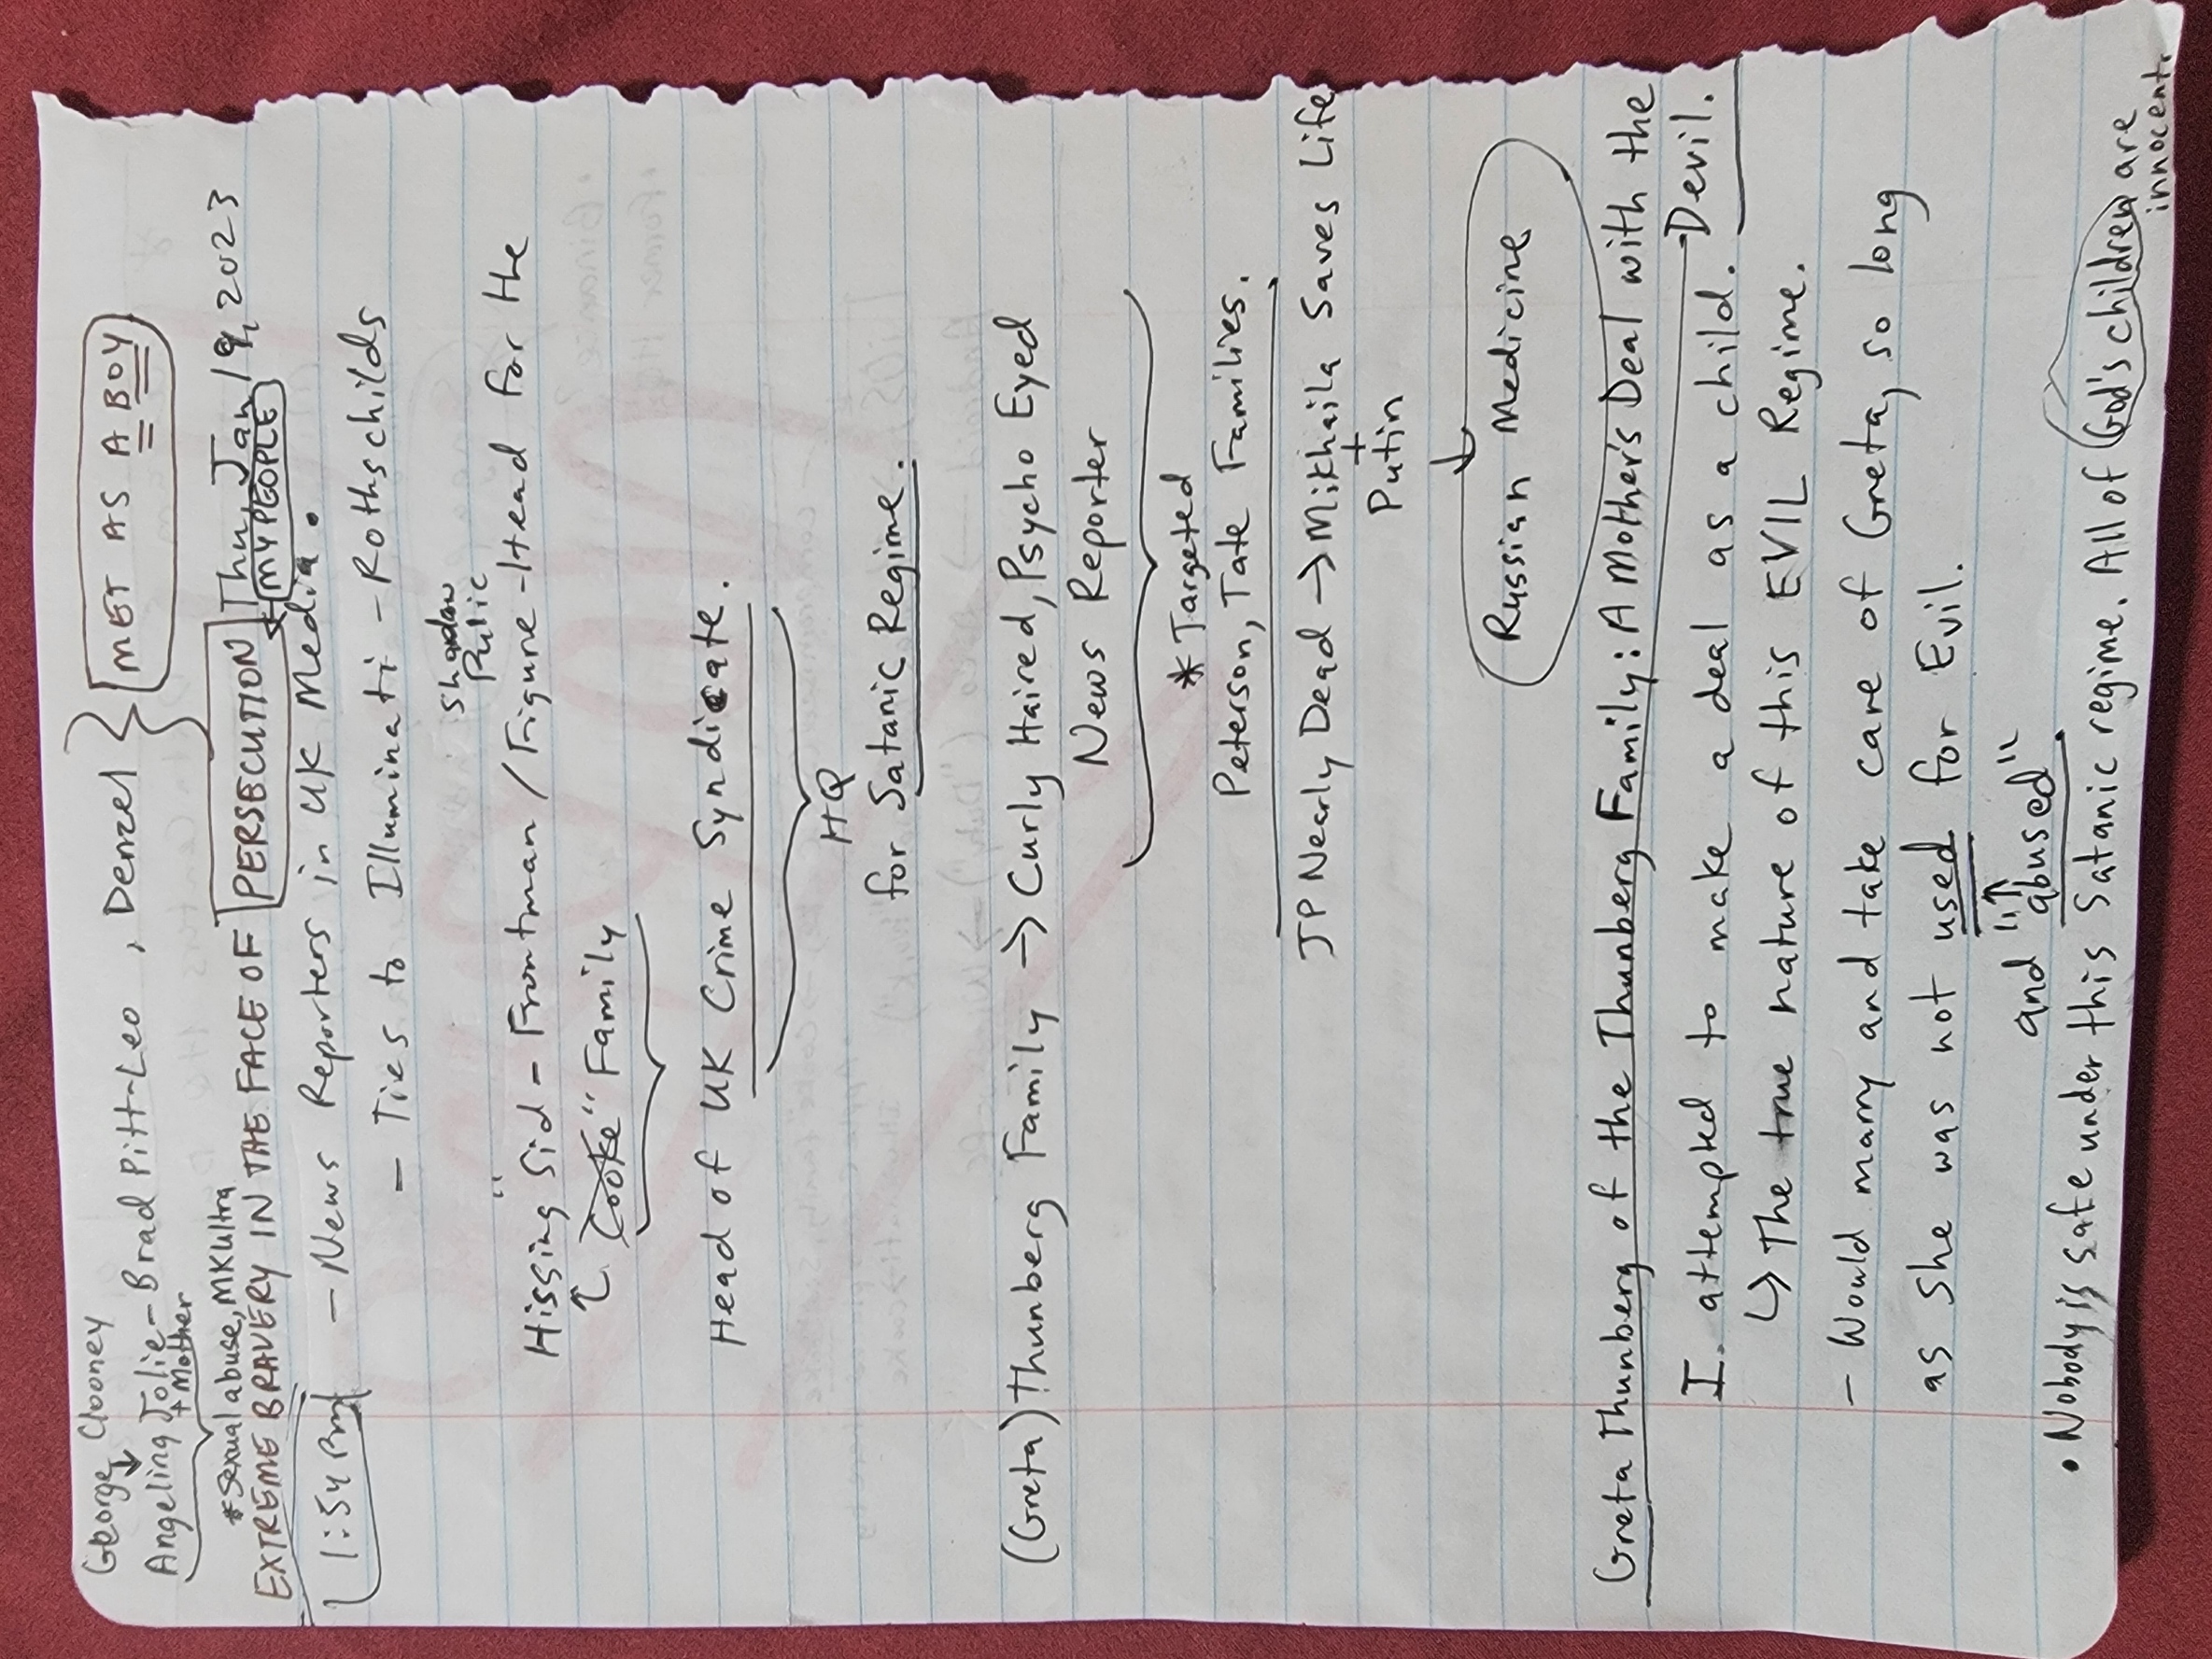 George Clooney
Angelina Jolie - Brad Pitt - Leo , Denzel
MET AS A BOY
+ Mother
*Sexual abuse, MKUltra
Thu, Jan 19, 2023
EXTREME BRAVERY IN THE FACE OF PERSECUTION
MY PEOPLE
1:54 Pm
- News Reporters in UK Media.
- Ties to Illuminati - Rothschilds
Shadow
Pulic
Hissing "Sid - Frontman / Figure-Head for the
Cooke" Family
Head of UK Crime Syndicate.
HQ
for Satanic Regime.
(Greta) Thunberg Family → Curly Haired, Psycho Eyed
News Reporter
* Targeted
Peterson, Tate Families.
JP Nearly Dead → Mikhaila Saves Life
+
Putin
↓
Russian Medicine
Greta Thunberg of the Thunberg Family: A Mother's Deal with the
Devil.
I. attempted to make a deal as a child.
↳ The true nature of this EVIL Regime.
- Would marry and take care of Greta, so long
as she was not used for Evil.
and "abused".
• Nobody is safe under this Satanic regime. All of God's children are
innocent.